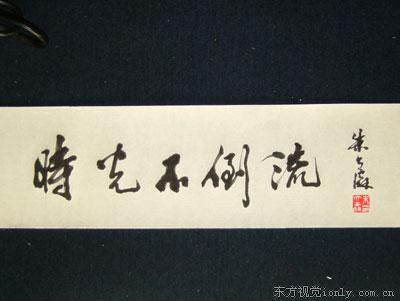 時光不倒流
朱大
东方视觉ionly.com.cn